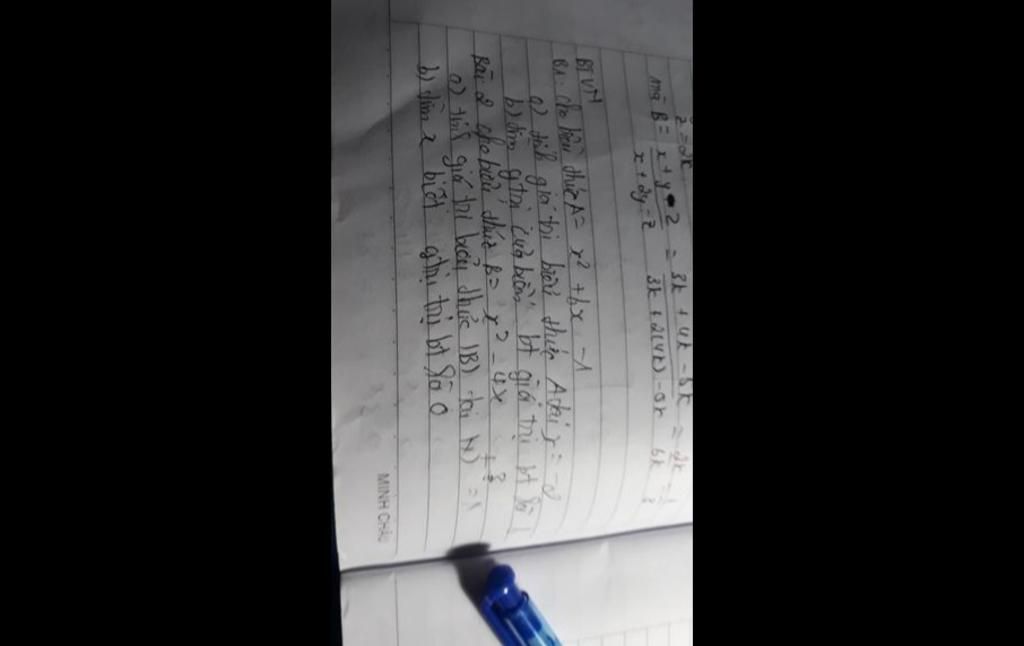 z = 2k
mà B = x + y - z / x + 2y - z = 3k + 4k - 5k / 3k + 2(4k) - 5k = 2k / 6k = 1 / 3
BTVN
B1: Cho biểu thức A = x² + bx - 1
a) tính giá trị biểu thức A tại x = -2
b) tìm gtri của biến bt giá trị bt là 1
Bài 2 cho biểu thức B = x² - 4x + 3
a) tính giá trị biểu thức (B) tại = 1
b) tìm x biết gtrị trị bt là 0
MINH CHÂU